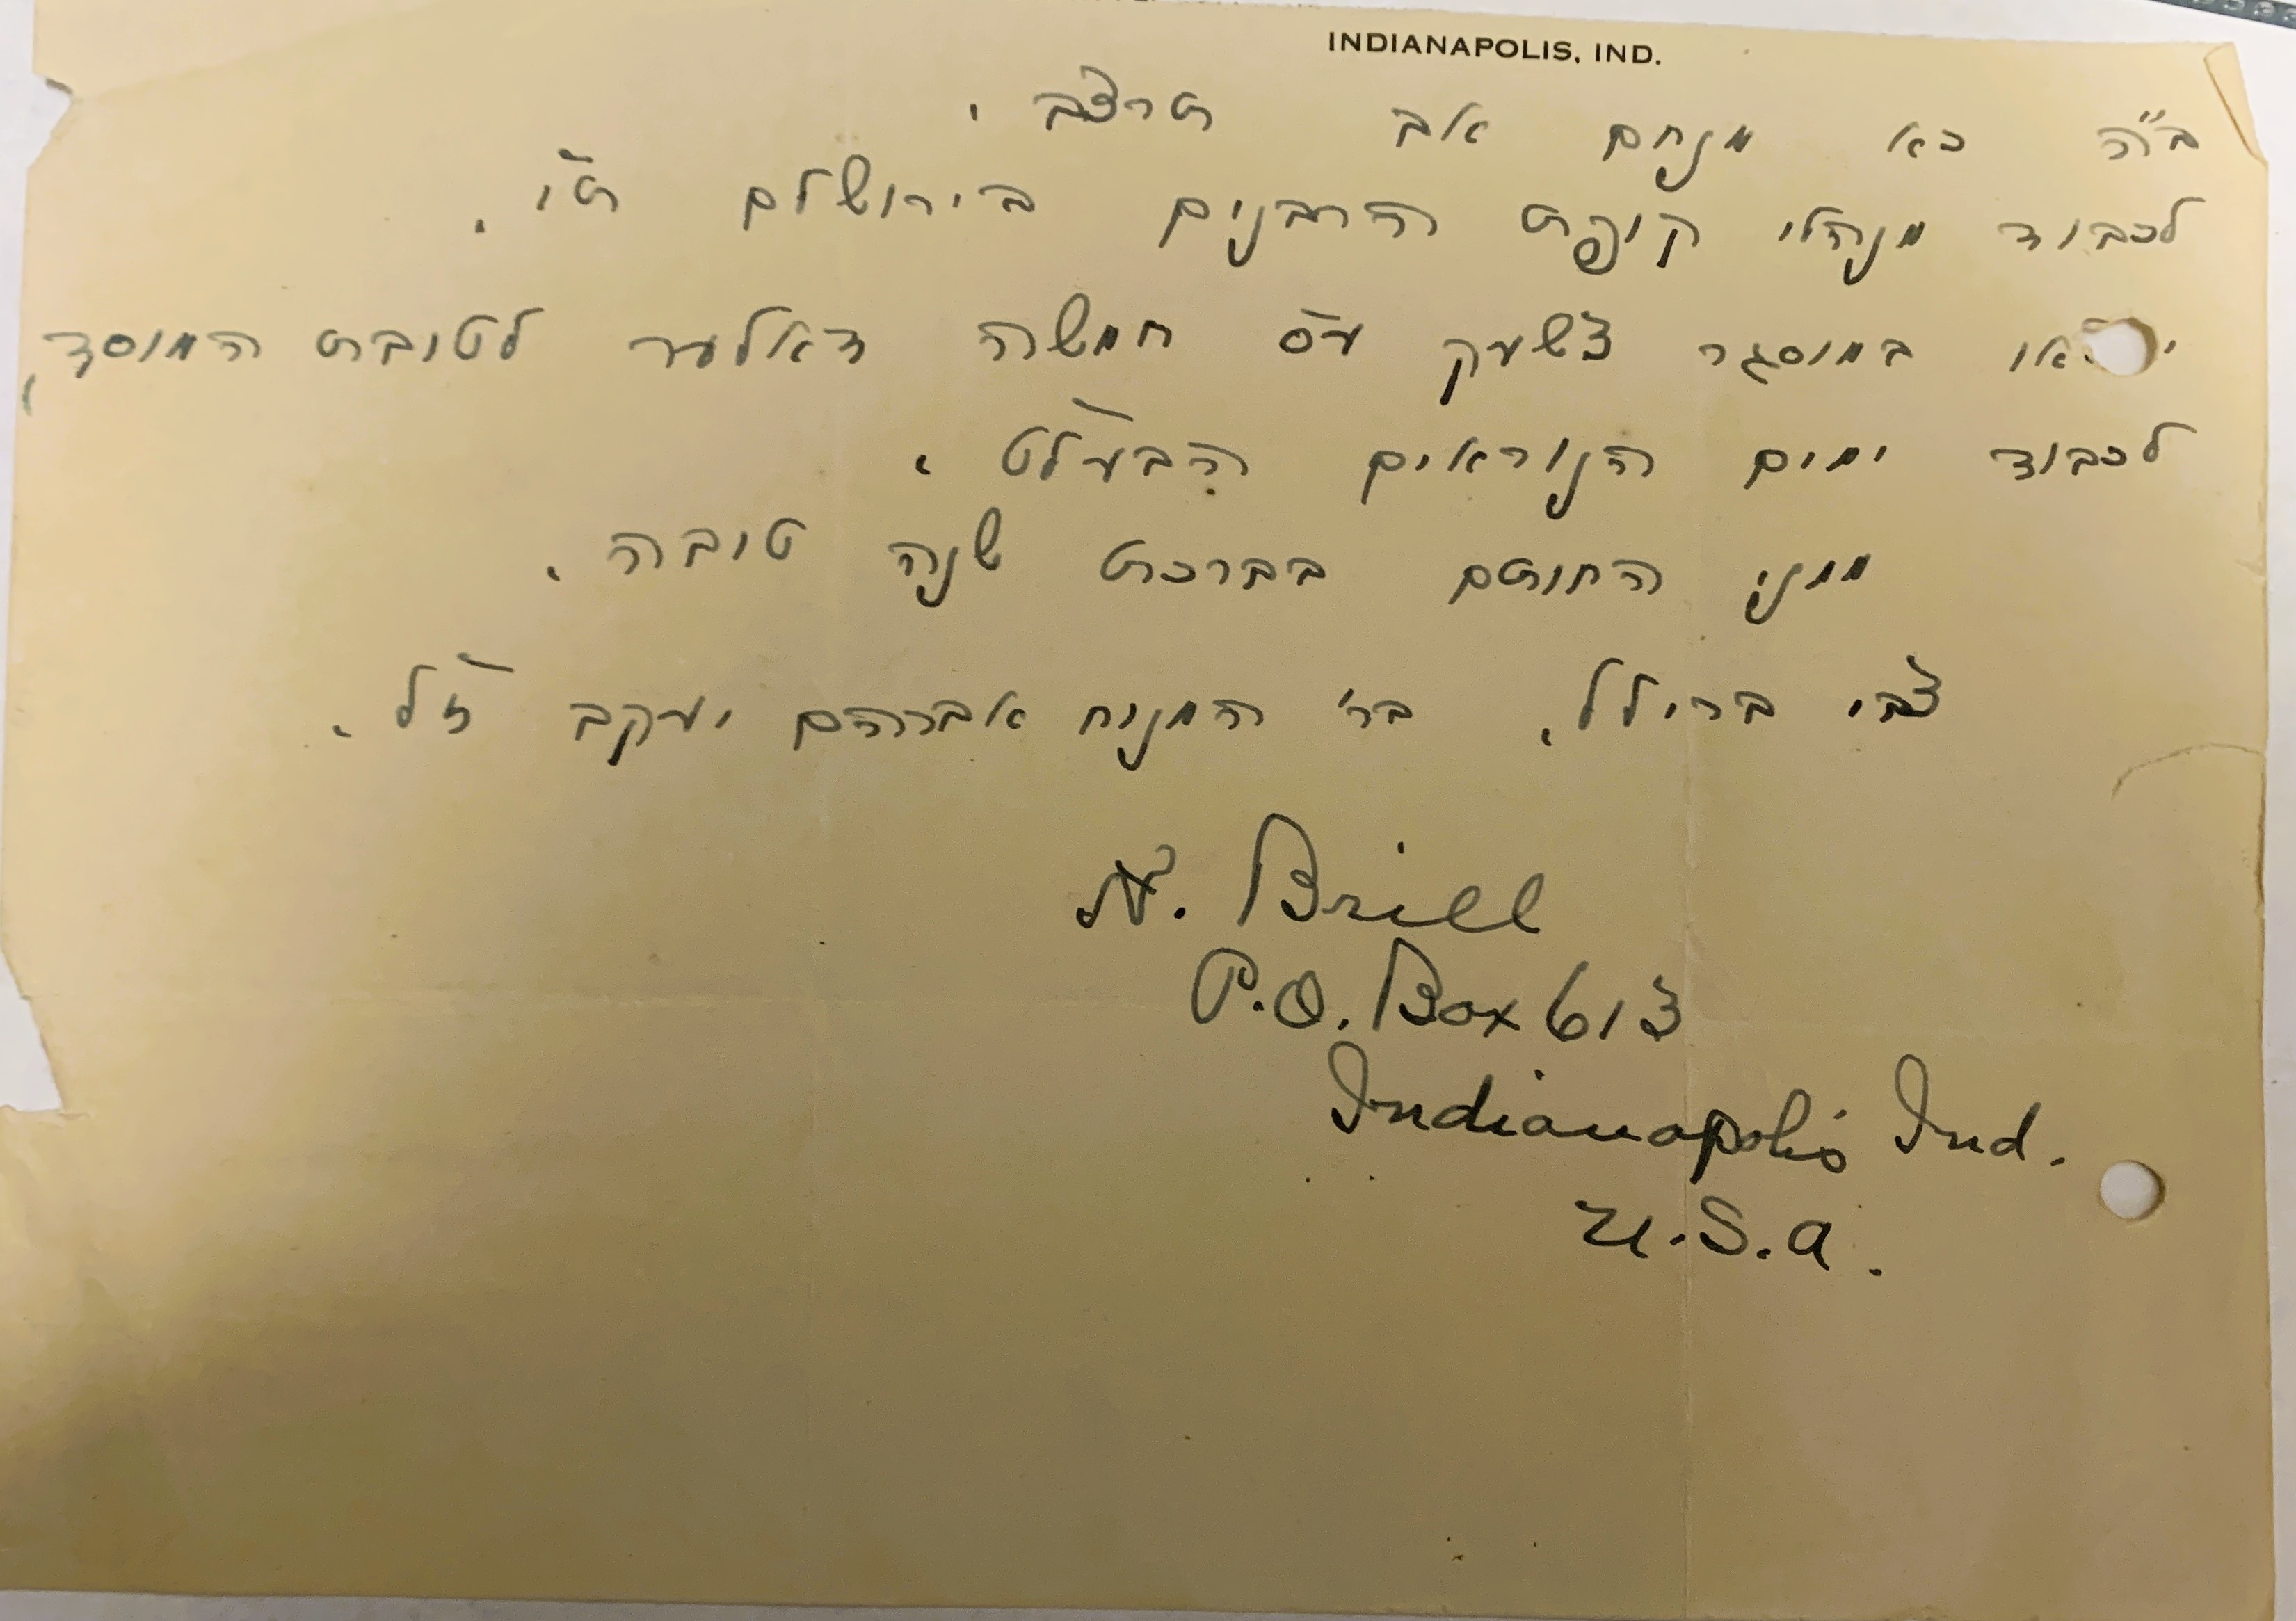 INDIANAPOLIS, IND.
ב"ה כא מנחם אב תרצב.
לכבוד מנהלי קופת הרבנים בירושלם תו.
במוסגר צשעק עס חמשה דאלער לטובת המוסד,
לכבוד ימים הנוראים הבעלט.
ממני החותם בברכת שנה טובה.
צבי ברילל. בר' המנוח אברהם יעקב ז"ל.
H. Brill
P.O. Box 613
Indianapolis Ind.
U.S.A.